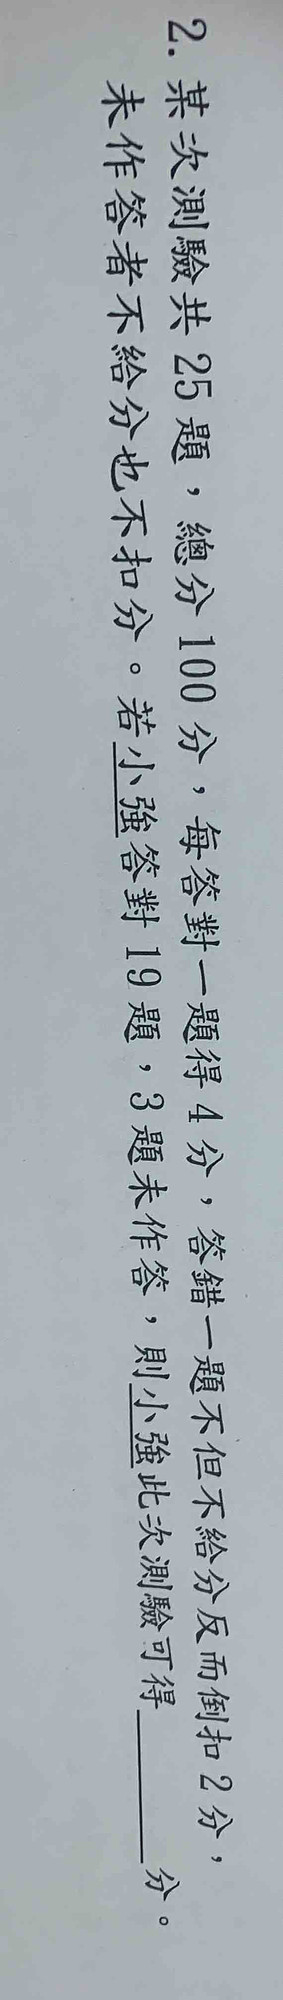 2. 某次測驗共 25 題，總分 100 分，每答對一題得 4 分，答錯一題不但不給分反而倒扣 2 分，
未作答者不給分也不扣分。若小強答對 19 題，3 題未作答，則小強此次測驗可得______分。